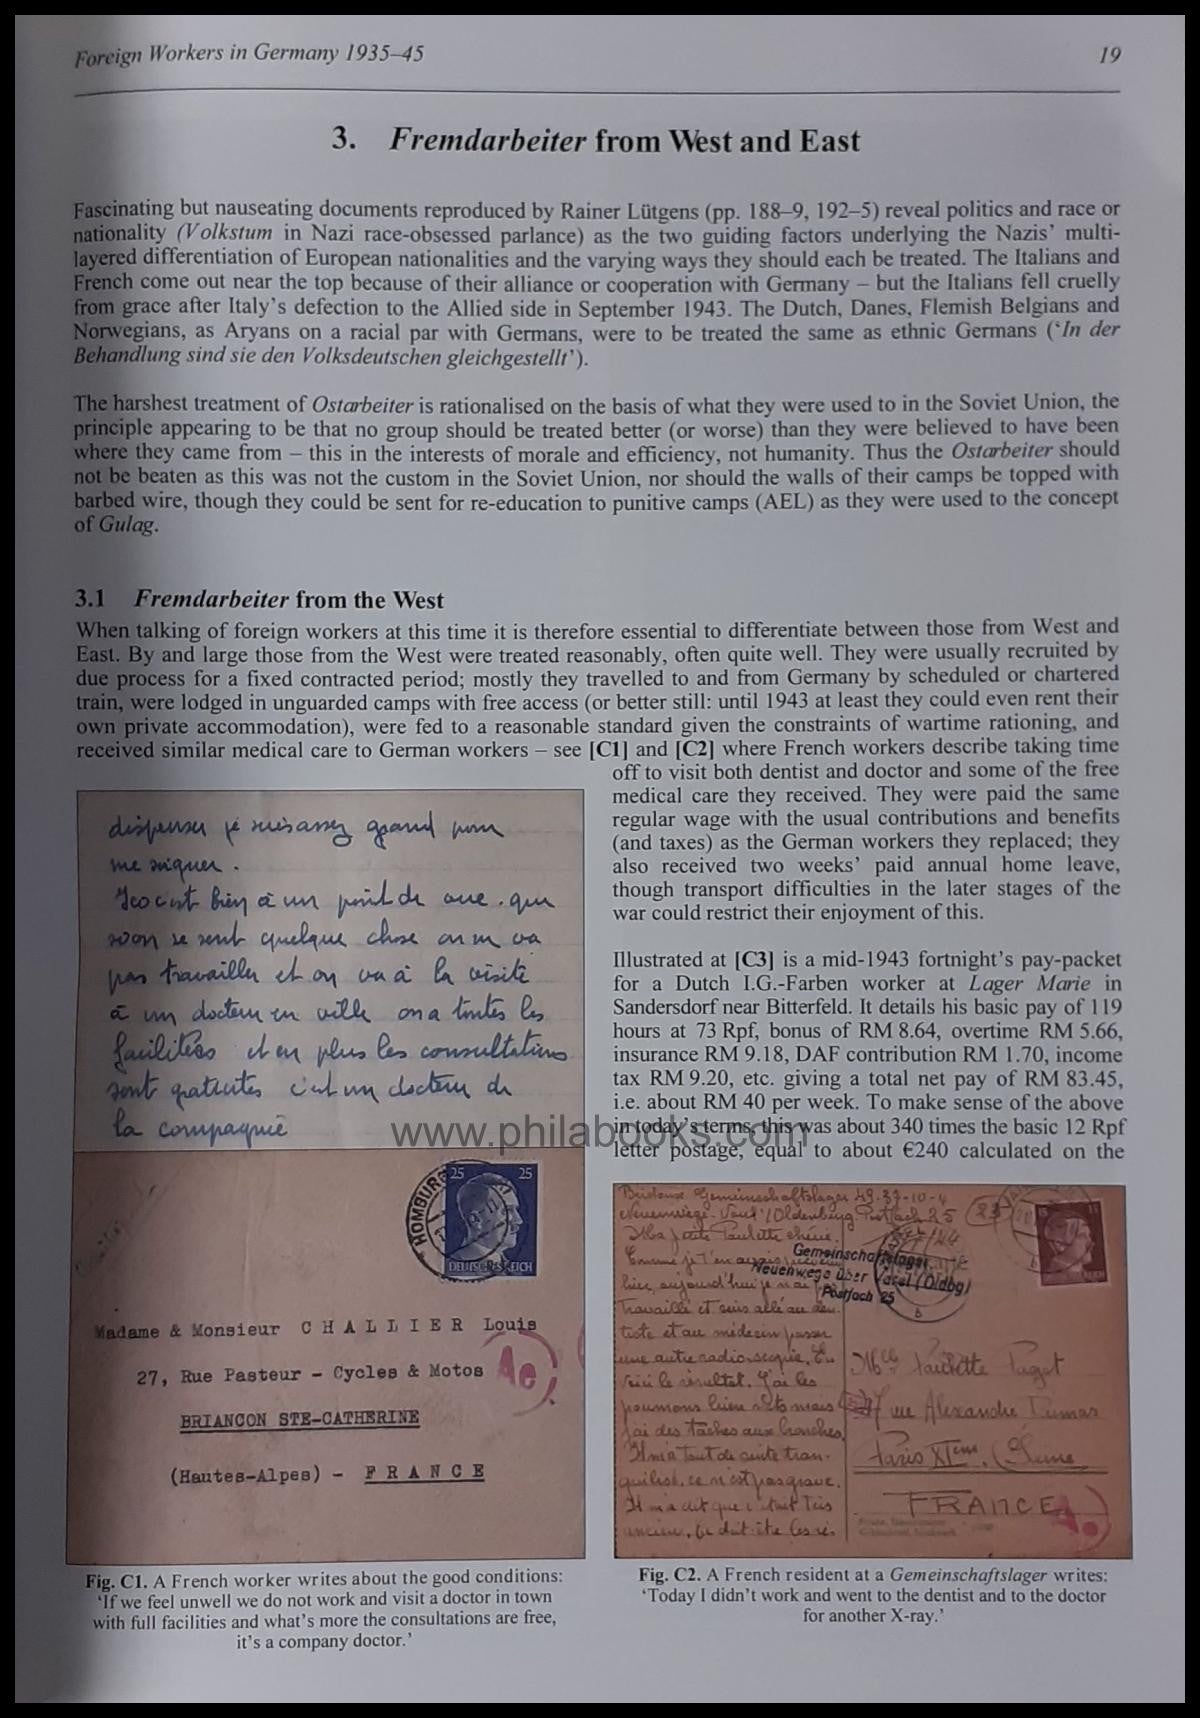 Foreign Workers in Germany 1935–45
19
3. Fremdarbeiter from West and East
Fascinating but nauseating documents reproduced by Rainer Lütgens (pp. 188–9, 192–5) reveal politics and race or
nationality (Volkstum in Nazi race-obsessed parlance) as the two guiding factors underlying the Nazis' multi-
layered differentiation of European nationalities and the varying ways they should each be treated. The Italians and
French come out near the top because of their alliance or cooperation with Germany – but the Italians fell cruelly
from grace after Italy's defection to the Allied side in September 1943. The Dutch, Danes, Flemish Belgians and
Norwegians, as Aryans on a racial par with Germans, were to be treated the same as ethnic Germans ('In der
Behandlung sind sie den Volksdeutschen gleichgestellt').
The harshest treatment of Ostarbeiter is rationalised on the basis of what they were used to in the Soviet Union, the
principle appearing to be that no group should be treated better (or worse) than they were believed to have been
where they came from – this in the interests of morale and efficiency, not humanity. Thus the Ostarbeiter should
not be beaten as this was not the custom in the Soviet Union, nor should the walls of their camps be topped with
barbed wire, though they could be sent for re-education to punitive camps (AEL) as they were used to the concept
of Gulag.
3.1 Fremdarbeiter from the West
When talking of foreign workers at this time it is therefore essential to differentiate between those from West and
East. By and large those from the West were treated reasonably, often quite well. They were usually recruited by
due process for a fixed contracted period; mostly they travelled to and from Germany by scheduled or chartered
train, were lodged in unguarded camps with free access (or better still: until 1943 at least they could even rent their
own private accommodation), were fed to a reasonable standard given the constraints of wartime rationing, and
received similar medical care to German workers – see [C1] and [C2] where French workers describe taking time
off to visit both dentist and doctor and some of the free
medical care they received. They were paid the same
regular wage with the usual contributions and benefits
(and taxes) as the German workers they replaced; they
also received two weeks' paid annual home leave,
though transport difficulties in the later stages of the
war could restrict their enjoyment of this.
Illustrated at [C3] is a mid-1943 fortnight's pay-packet
for a Dutch I.G.-Farben worker at Lager Marie in
Sandersdorf near Bitterfeld. It details his basic pay of 119
hours at 73 Rpf, bonus of RM 8.64, overtime RM 5.66,
insurance RM 9.18, DAF contribution RM 1.70, income
tax RM 9.20, etc. giving a total net pay of RM 83.45,
i.e. about RM 40 per week. To make sense of the above
in today's terms, this was about 340 times the basic 12 Rpf
letter postage, equal to about €240 calculated on the
je suis assez grand pour
me
bien à un point de vue. qui
se sent quelque chose on
pas travailler et on va à la visite
à un docteur en ville on a toutes les
facilités et en plus les consultations
sont gratuites c'est un docteur de
la compagnie
www.philabooks.com
25 25
HOMBURG
DEUTSCHES REICH
Madame & Monsieur CHALLIER Louis
27, Rue Pasteur – Cycles & Motos
BRIANCON STE-CATHERINE
(Hautes-Alpes) – FRANCE
Ae
Gemeinschaftslager 49-37-10-4
Postfach 25
Ma petite Paulette chérie.
Gemeinschaftslager
Neuenwege über Varel (Oldbg)
Postfach 25
hier, aujourd'hui je n'ai pas
travaillé et suis allé au den-
tiste et au médecin passer
une autre radioscopie. En
voici le résultat. J'ai les
poumons bien nets mais
j'ai des taches aux bronches.
Il m'a tout de suite tran-
quilisé, ce n'est pas grave.
Il m'a dit que c'était très
Mlle Paulette
rue Alexandre Dumas
Paris XIeme. (Seine
FRANCE
Fig. C1. A French worker writes about the good conditions:
'If we feel unwell we do not work and visit a doctor in town
with full facilities and what's more the consultations are free,
it's a company doctor.'
Fig. C2. A French resident at a Gemeinschaftslager writes:
'Today I didn't work and went to the dentist and to the doctor
for another X-ray.'